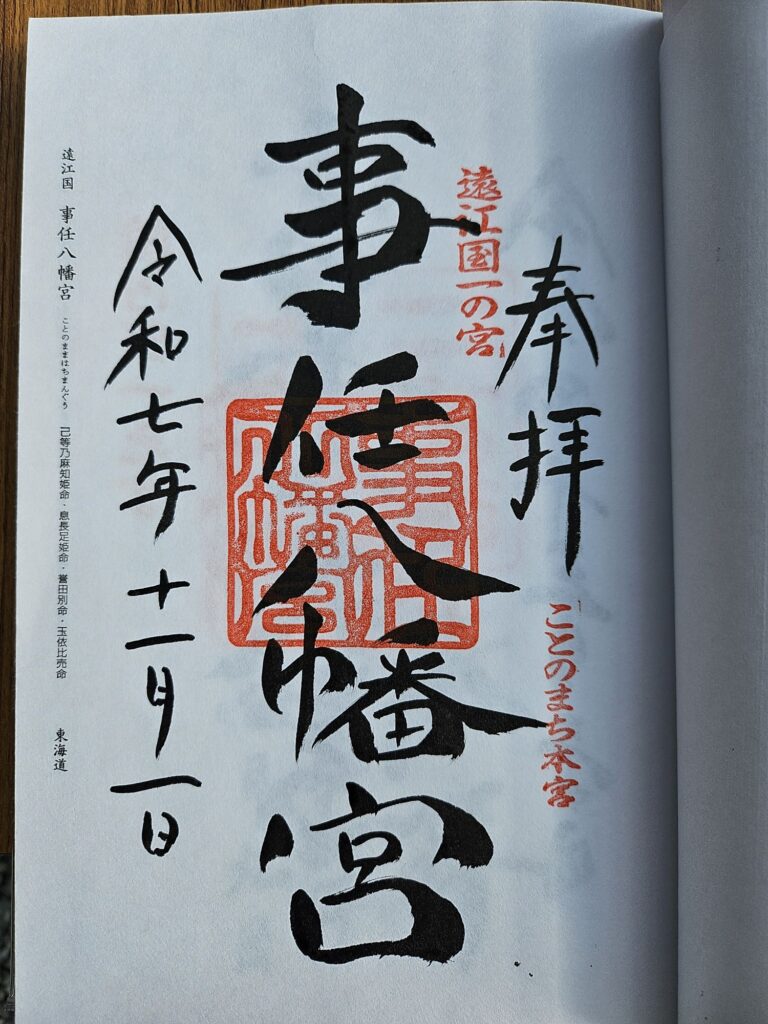 奉拝
ことのまち本宮
遠江国一の宮
事任八幡宮
事任
八幡宮
令和七年十一月一日
遠江国 事任八幡宮 ことのままはちまんぐう 己等乃麻知姫命・息長足姫命・誉田別命・玉依比売命 東海道